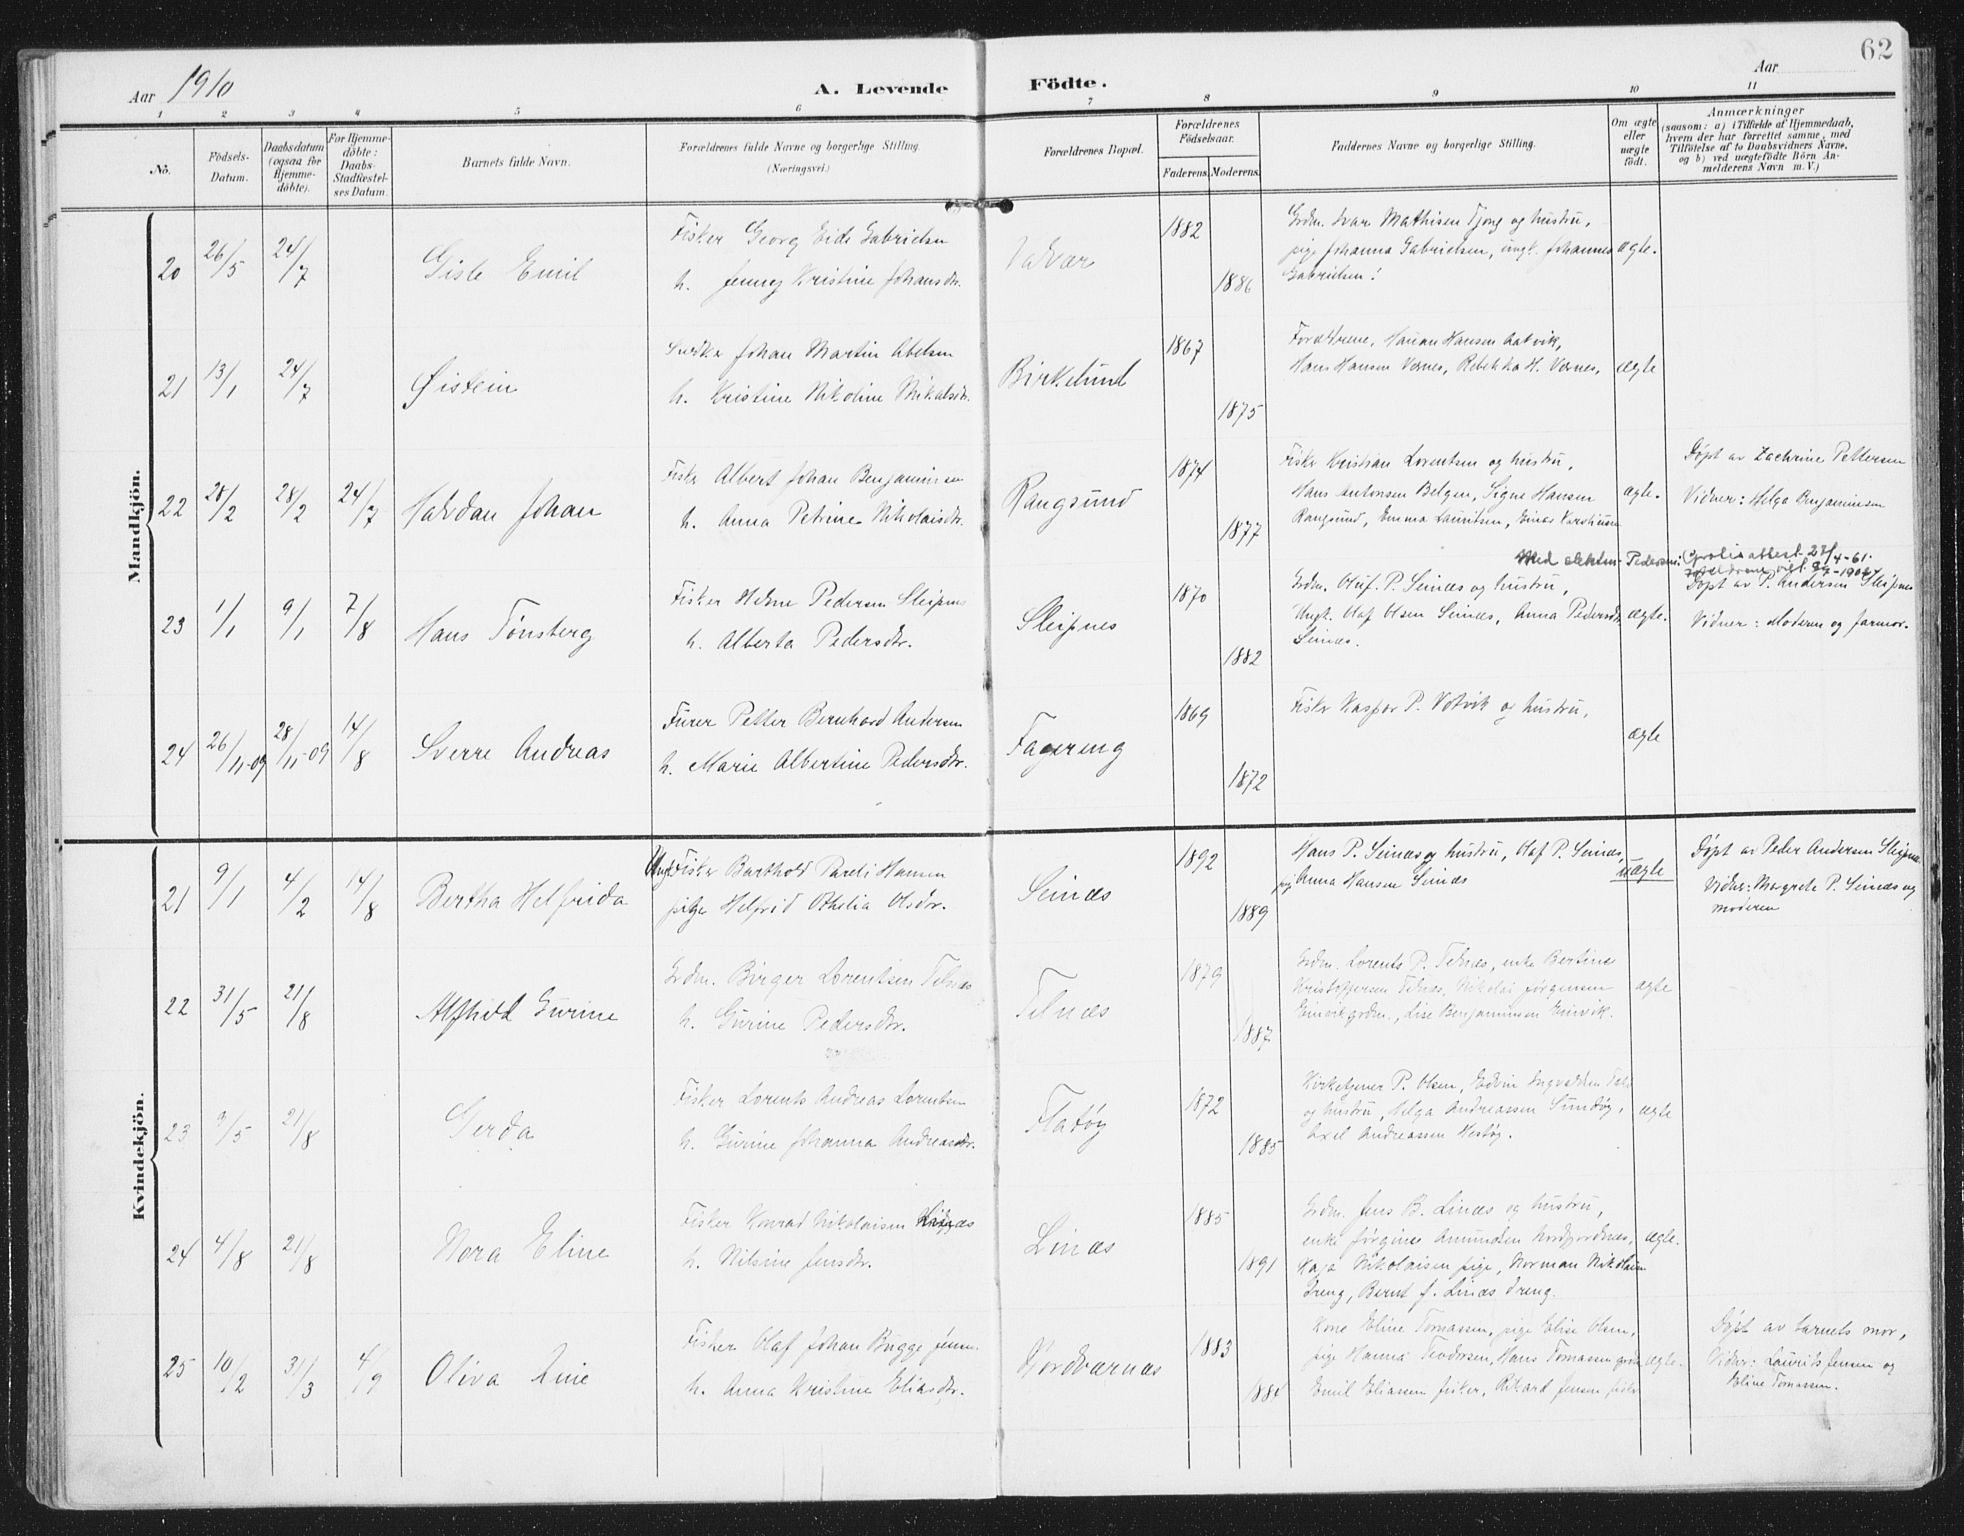 62
Aar 1910
A. Levende Födte.
Aar
1 2 3 4 5 6 7 8 9 10 11
No.
Födsels-Datum.
Daabsdatum (ogsaa för Hjemme-döbte).
For Hjemme-döbte: Daabs-Stadfæstel-ses Datum.
Barnets fulde Navn.
Forældrenes fulde Navne og borgerlige Stilling. (Næringsvei.)
Forældrenes Bopæl.
Forældrenes Födselsaar.
Faderens. Moderens.
Faddernes Navne og borgerlige Stilling.
Om ægte eller uægte födt.
Anmærkninger
(saasom: a) i Tilfælde af Hjemmedaab, hvem der har forrettet samme, med Tilföielse af to Daabsvidners Navne, og b) ved uægtefödte Börn An-melderens Navn m. V.)
Mandkjön.
20 26/5 24/7 Gisle Emil
Fisker Georg Eide Gabrielsen
h. Jenny Kristine Johansdtr.
Valvær 1882 1886
Grdm. Ivar Mathisen Tjong og hustru,
pige Johanna Gabrielsen, ungk. Johannes
Gabrielsen!
ægte.
21 13/1 24/7 Øistein
Johan Martin Abelsen
h. Kristine Nikoline Nikolsdtr.
Birkelund 1867 1875
Forældrene, Hansen
Hans Hansen Vernes, Rebekka H. Vernes,
ægte
22 28/2 28/2 24/7 Halvdan Johan
Fisker Albert Johan Benjaminsen
h. Anna Petrine Nikolaisdtr.
Rangsund 1874 1877
Fisker Kristian Lorentsen og hustru,
Hans Antonsen Belgen, Signe Hansen
Rangsund, Emma Lauritsen,
ægte.
Døpt av Zachrine Pettersen
Vidner: Helga Benjaminsen
23 1/1 9/1 7/8 Hans Tønsberg
Fisker Pedersen Sleipnes
h. Alberta Pedersdtr.
Sleipnes 1870 1882
Grdm. Oluf. P. Seinæs og hustru,
Ungk. Olaf Olsen Seinæs, Anna Pedersdtr.
Seinæs.
ægte.
Døpt av P. Andersen Sleipnes
Vidner: Moderen og farmor.
24 26/11-09 28/11-09 14/8 Sverre Andreas
Furer Petter Bernhard Andersen
h. Marie Albertine Pedersdtr.
Fagereng 1869 1872
Fisker Kaspar P. Votvik og hustru,
ægte
Kvindekjön.
21 9/1 4/2 14/8 Bertha Helfrida
Ungk. Fisker Barthold Pareli Hansen
pige Helfrid Othelia Olsdtr.
Seinæs 1892 1889
Hans P. Seinæs og hustru, Olaf P. Seinæs,
pige Anna Hansen Seinæs
uægte
Døpt av Peder Andersen Sleipnes
Vidner: Margrete P. Seinæs og
moderen
22 31/5 21/8 Alfhild Gurine
Grdm. Birger Lorentsen Telnæs
h. Gurine Pedersdtr.
Telnæs 1879 1887
Grdm. Lorents P. Telnæs, enke Bertine
Kristoffersen Telnæs, Nikolai Jørgensen
grdm., Lise Benjaminsen
ægte
23 9/5 21/8 Gerda
Fisker Lorents Andreas Lorentsen
h. Gurine Johanna Andreasdtr.
Flatøy 1872 1885
Kirketjener P. Olsen, Edvin
og hustru, Helga Andreassen Sundøy,
Axel Andreassen Hestøy.
ægte
24 4/8 21/8 Nora Eline
Fisker Konrad Nikolaisen
h. Nilsine Jensdtr.
Linæs 1885 1891
Grdm. Jens B. Linæs og hustru,
enke Jørgine Amundsen Nordfjordnæs,
Kaja Nikolaisen pige, Norman Nikolaisen
dreng, Bernt J. Linæs dreng.
ægte.
25 10/2 31/3 4/9 Oliva Anie
Fisker Olaf Johan Bugge Jensen
h. Anna Kristine Eliasdtr.
Nordværnæs 1883 1884
Kone Eline Tomassen, pige Elise Olsen,
pige Hanna Teodorsen, Hans Tomassen
Emil Eliassen fisker, Rikard Jensen fisker
ægte.
Døpt av barnets mor,
Vidner: Laurits Jensen og
Eline Tomassen.